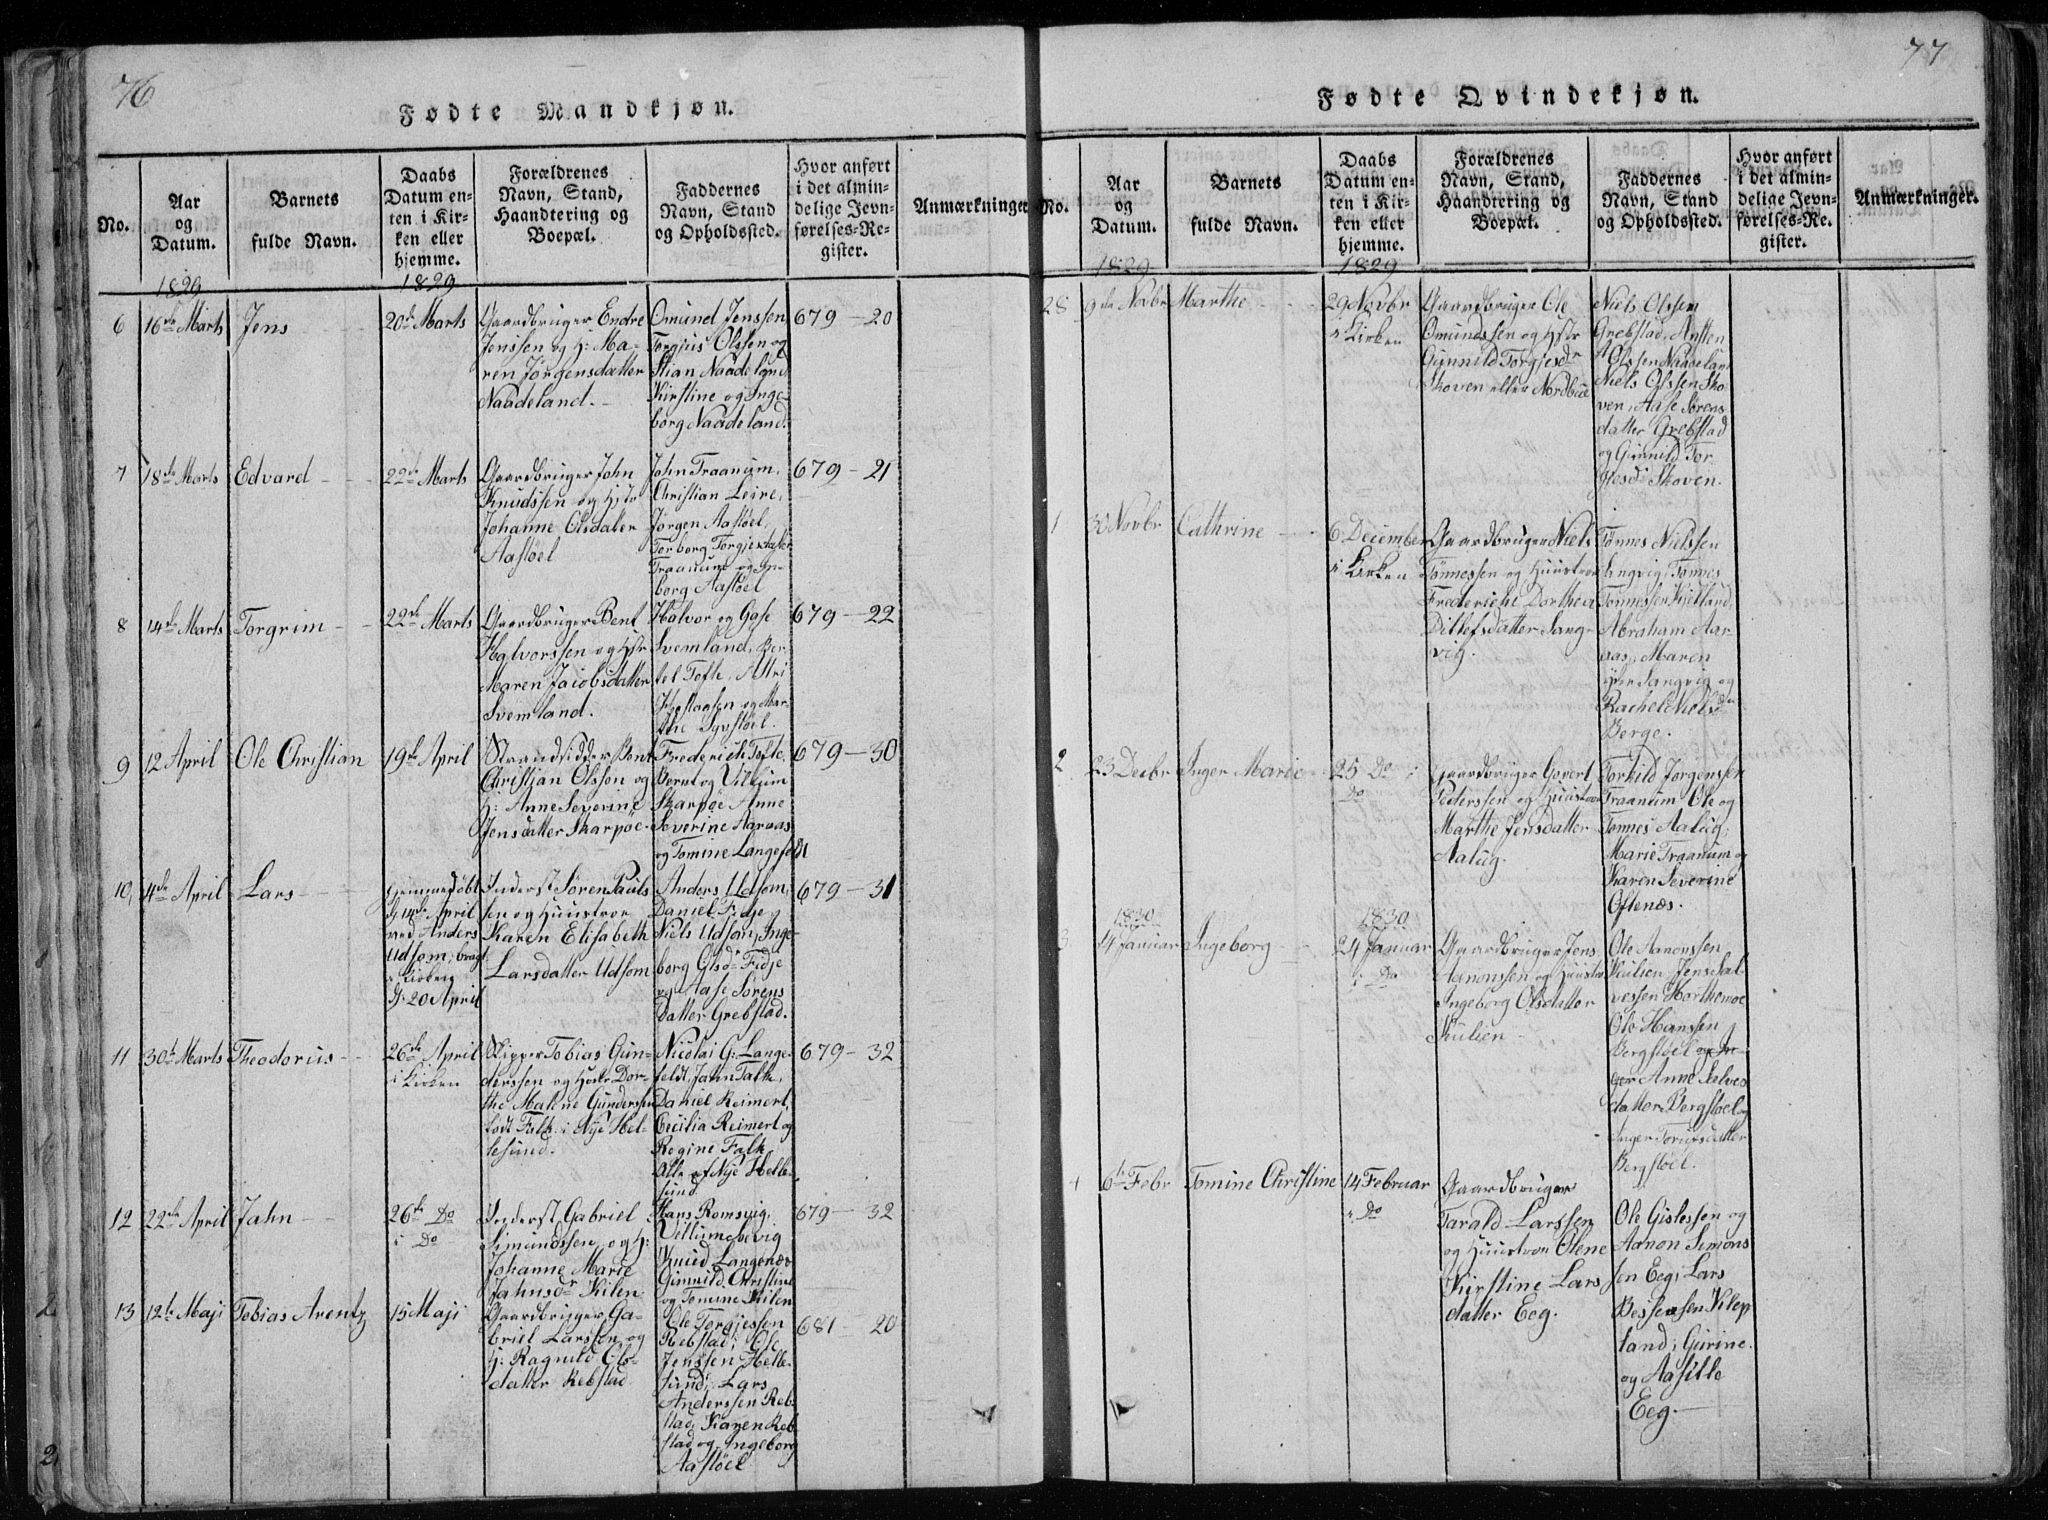 76
Fødte Mandkjøn.
No.
Aar
og
Datum.
Barnets
fulde Navn.
Daabs
Datum en-
ten i Kir-
ken eller
hjemme.
Forældrenes
Navn, Stand,
Haandtering og
Boepæl.
Faddernes
Navn, Stand
og Opholdssted.
Hvor anført
i det almin-
delige Jevn-
førelses-Re-
gister.
Anmærkninger
1829
1829
6
16de Marts
Jens
20de Marts
Gaardbruger Endre
Jenssen og H: Ma-
ren Jørgensdatter
Naadeland.
Omund Jenssen,
Torgius Olssen og
Stian Naadeland
Kirstine og Inge-
borg Naadeland.
679 - 20
7
18de Marts
Edvard
22de Marts
Gaardbruger John
Knudssen og Hstr
Johanne Olsdatter
Aastøel
John Traanum,
Christian Leire,
Jørgen Aastøel,
Torborg Torgjesdatter
Traanum og In-
borg Aastøel
679 - 21
8
14de Marts
Torgrim
22de Marts
Gaardbruger Bent
Halvorssen og Hstr
Maren Jacobsdatter
Svemland.
Halvor og Gase
Svemland, Ber-
tel Tofte, Atri
og Mar-
the Syvstøel.
679 - 22
9
12 April
Ole Christian
19de April
Strandsidder Bent
Christian Olssen og
H: Anne Severine
Jensdatter Skarpøe
Frederich Tofte,
Bernt og Villum
Skarpøe Anne
Severine Aaraas
og Tomine Langefeldt
679 - 30
10,
4de April
Lars
hjemmedøbt
d: 14de April
ved Anders
Udsom, bragt
i Kirken
d: 20 April
Inderst Søren Pauls
sen og Huustroe
Karen Elisabeth
Larsdatter Udsom
Anders Udsom,
Daniel Fidje,
Niels Udsom, Inge-
borg Olsdr Fidje
og Aase Sørens
Datter Grebstad.
679 - 31
11
30te Marts
Theodorus
26de April
i Kirken
Skipper Tobias Gun-
derssen og Hstr Dor-
the Malene Gunderssen
født Falk i Nye Hel-
lesund.
Nicolai G: Lange-
feldt, Jahn Falk,
Daniel Reimert,
Cecilia Reimert og
Regine Falk
alle af Nye Helle-
sund
679 - 32
12
22de April
Jahn
26de Do
i Do
Inderst Gabriel
Simundssen og H:
Johanne Marie
Jahnsdr Kilen
Hans Romsvig,
Villum
Knud Langenæs
Gunnild Christine
og Tomine Kilen
679 - 32
13
12te Maji
Tobias Arentz
15 Maji
Gaardbruger Ga-
briel Larssen og
H: Ragnild Ols-
datter Rebstad
Ole Torgjessen
Rebstad, Ole
Jenssen Helle-
sund, Lars
Anderssen Reb-
stad, Karen Reb-
stad og Ingeborg
Aastøel
681 - 20
77
Fødte Qvindekjøn.
No.
Aar
og
Datum.
Barnets
fulde Navn.
Daabs
Datum en-
ten i Kir-
ken eller
hjemme.
Forældrenes
Navn, Stand,
Haandtering og
Boepæl.
Faddernes
Navn, Stand
og Opholdssted.
Hvor anført
i det almin-
delige Jevn-
førelses-Re-
gister.
Anmærkninger.
1829
1829
28
9de Novbr
Marthe
29 Novbr
i Kirken
Gaardbruger Ole
Omundssen og Hstr
Gunnild Torgjesdr
Skoven eller Nordbue
Niels Olssen
Grebstad, Austen
Olssen Naadeland
Niels Olssen Sko-
ven, Aase Sørens-
datter Grebstad
og Gunnild Tor
gjesdr Skoven.
1
30 Novbr
Cathrine
6 December
i Kirken
Gaardbruger Niels
Tönnessen og Huustroe
Frederiche Dorthea
Ditlefsdatter Sang-
vig.
Tønnes Nielssen
Tønnes
Tønnessen Kjetland,
Abraham Aar-
aas, Maren
Sangvig og
Rachel Nielsdr
Berge.
2
23 Decbr
Inger Marie
25 Do i
Do
Gaardbruger Govert
Pederssen og Huustroe
Marthe Jensdatter
Aalug.
Torkild Jørgenssen
Traanum Ole og
Tønnes Aalug,
Marie Traanum og
Karen Severine
Oftenæs.
1830
1830
3
14 Januar
Ingeborg
24 Januar
i Do
Gaardbruger Jens
Aanonssen og Huustroe
Ingeborg Olsdatter
Kulien
Ole Aanonssen
Kulien, Jens Sal-
vessen Hortemoe
Ole Hanssen
Bergstøel og In-
ger Anne Salves
datter Bergstøel og
Inger Torufsdatter
Bergstøel.
4
6te Febr
Tomine Christine
14 Februar
i Do
Gaardbruger
Tarald Larssen
og Huustroe Olene
Kirstine Lars
datter Eeg.
Ole Gislessen og
Aanon Simons
sen Eeg, Lars
Bessessen Klep
land, Gurine
og Aasille
Eeg.